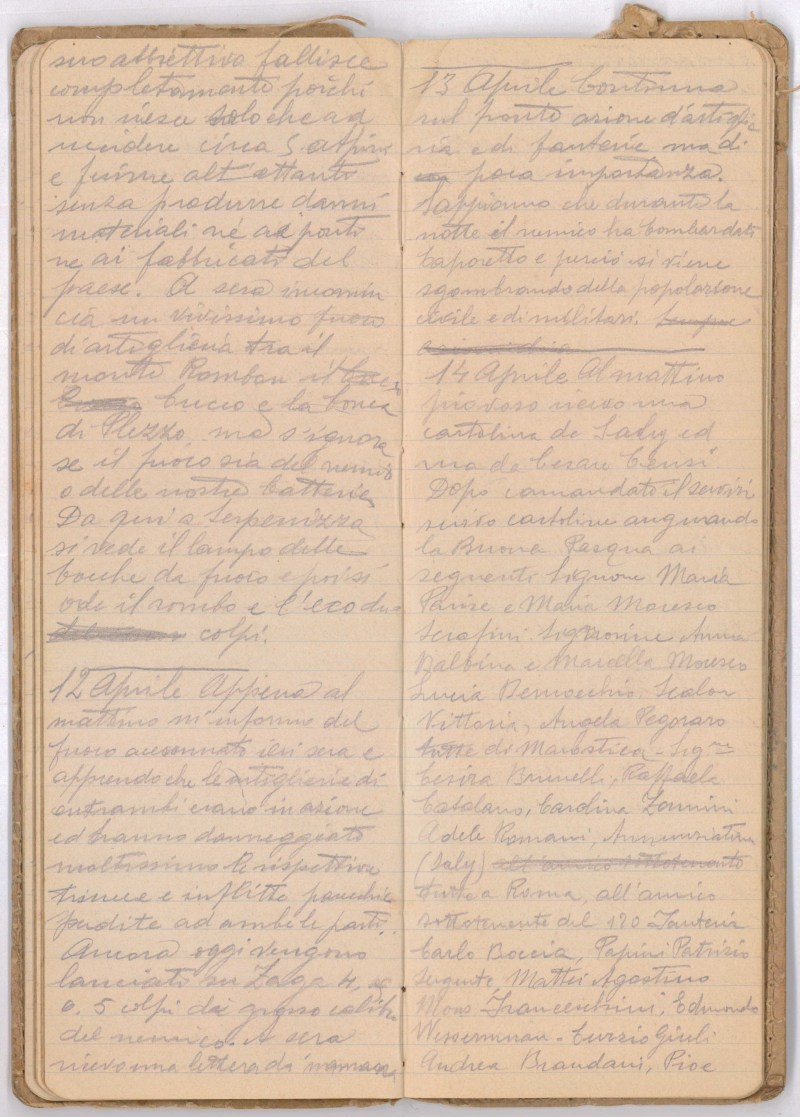 suo obbiettivo fallisce
completamente poichè
non riesce solo che ad
uccidere circa 5 alpini
e ferirne altrettanti
senza produrre danni
materiali nè ai ponti
ne ai fabbricati del
paese. A sera incomin
cia un vivissimo fuoco
di artiglieria tra il
monte Rombon il
Cucco e la Conca
di Plezzo ma s'ignora
se il fuoco sia del nemico
o delle nostre batterie
Da qui a Serpenizza
si vede il lampo delle
bocche da fuoco e poi si
ode il rombo e l'eco dei
colpi.
12 Aprile Appena al
mattino m'informo del
fuoco accennato ieri sera e
apprendo che le artiglierie di
entrambi erano in azione
ed hanno danneggiato
moltissimo le rispettive
trincee e inflitte parecchie
perdite ad ambo le parti.
Ancora oggi vengono
lanciati su Zaga 4,
o 5 colpi di grosso calibro
del nemico. A sera
ricevo una lettera di mamma
13 Aprile Continua
sul fronte azione d'artiglie
ria e di fanterie ma di
poca importanza.
Sappiamo che durante la
notte il nemico ha bombardato
Caporetto e perciò si viene
sgombrando della popolazione
civile e di militari.
14 Aprile Al mattino
piovoso ricevo una
cartolina da Saly ed
una da Cesare Censi
Dopo comandato il servizi
scrivo cartoline augurando
la Buona Pasqua ai
seguenti Signore Maria
Parise e Maria Moresco
Serafini Signorine Anna
Balbina e Marcella Moresco
Lucia Scalor
Vittoria, Angela Pegoraro
tutte di Marostica - Sig.ne
Cesira Brunelli, Raffaela
Catalano, Carolina Zannini
Adele Romani, Annunziatina
(Saly) all'amico sottotenente
tutte a Roma, all'amico
sottotenente del 120 Fanteria
Carlo Boccia, Papini Patrizio
Sergente Mattei Agostino
Mons Franceschini, Edmondo
Wesserman - Curzio Giuli
Andrea Brandani, Pio e